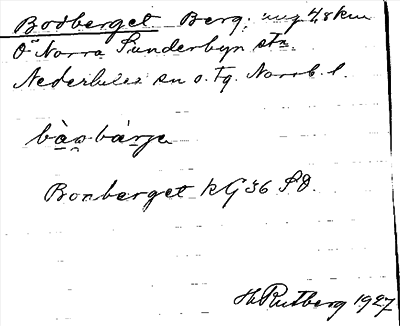 Bodberget Berg; ung 4,8 km
Ö Norra Sunderbyn stn.
Nederluleå sn o. tg. Norrb. l.
bàọbárje
Bonberget kG 36 SD.
H Rutberg 1927